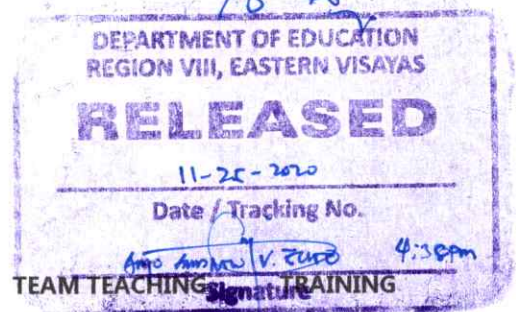 DEPARTMENT OF EDUCATION
REGION VIII, EASTERN VISAYAS
RELEASED
11-25-2020
Date / Tracking No.
V. 4:38pm
Signature
TEAM TEACHING TRAINING